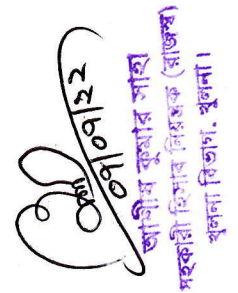 ০৭/০৭/২২
আশীষ কুমার সাহা
সহকারী হিসাব নিয়ন্ত্রক (রাজস্ব)
খুলনা বিভাগ, খুলনা।